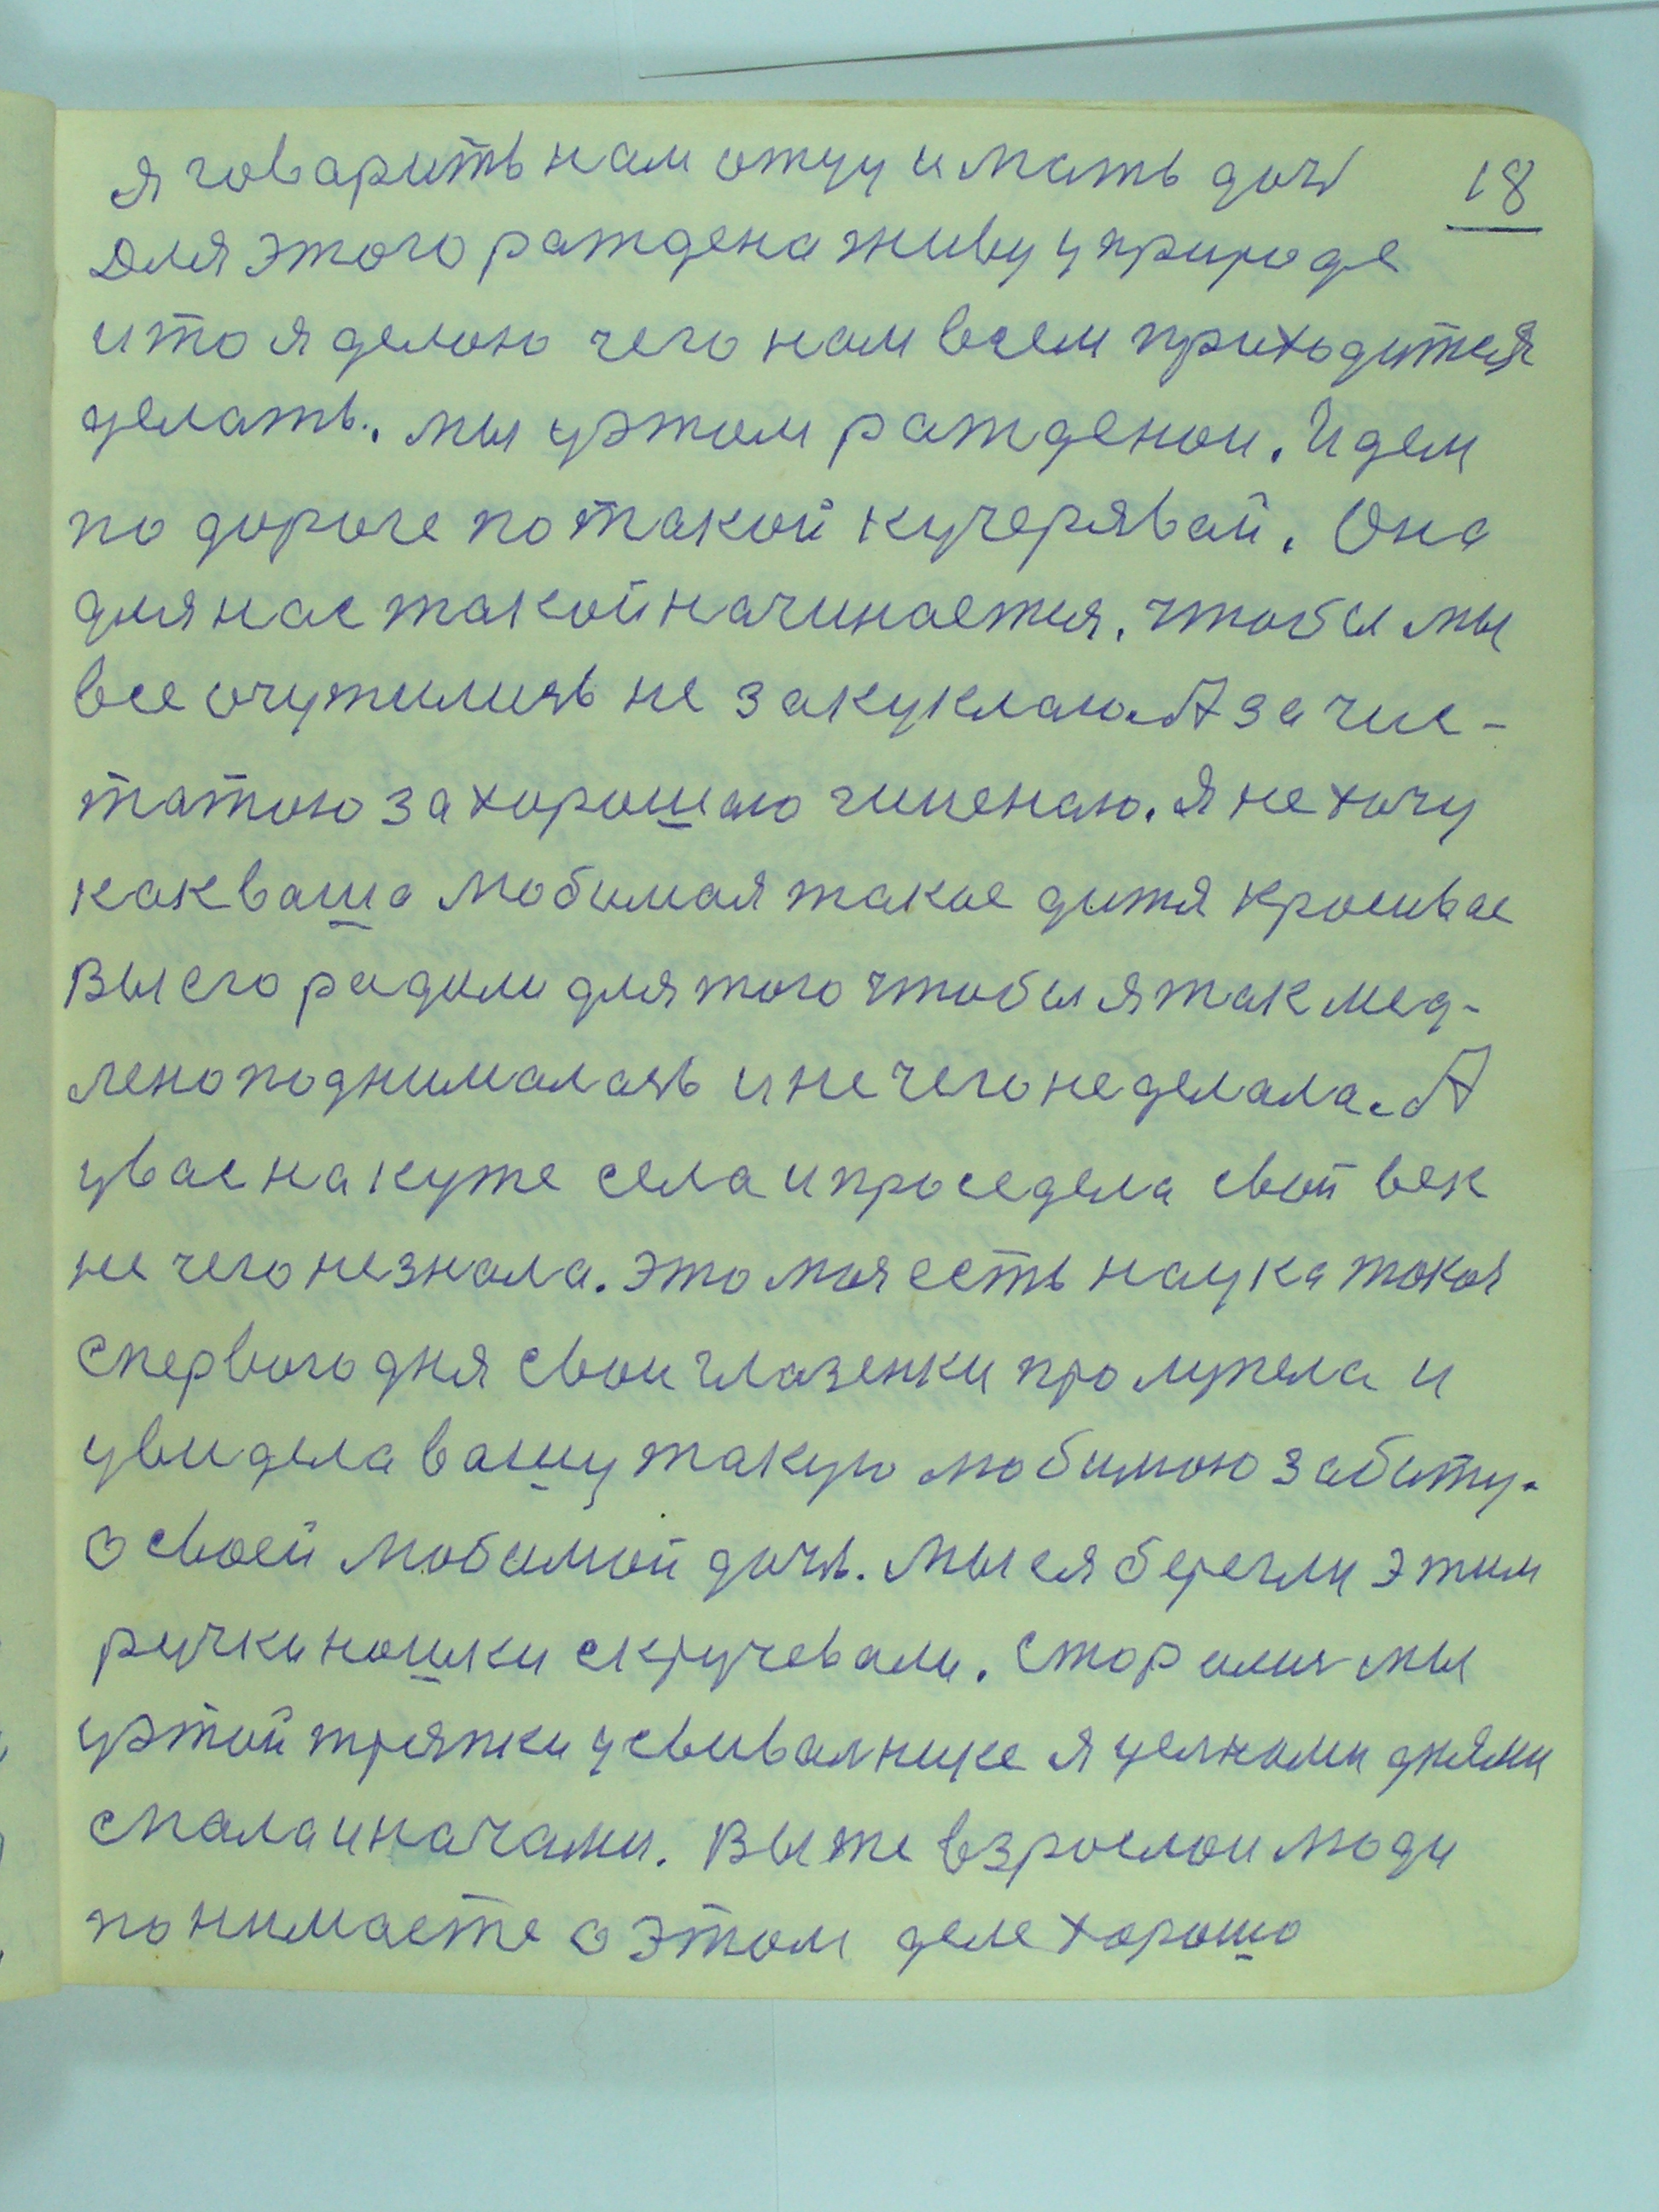 я говарить нам отцу и мать дочь 18
Для этого раждена живу у природе
и то я делаю чего нам всем приходится
делать. мы уэтом рождены. Идем
по дороге по такой кучерявай. Она
для нас такой начинается. чтобы мы
все очутились не за куклаю. А за чис-
татою за хорошаю гигенаю. Я не хочу
как ваша любимая такое дитя красивае
Вы его радили для того чтобы я так мед-
лено поднималась и не чего не делала. А
у вас на куте села и проседела свой век
не чего незнала. это моя есть наука такая
с первого дня свои глазенки пролупела и
увидела вашу такую любимою заботу.
О своей любимой дочь. мы ея берегли этим
ручки ношки скручевали. Старились мы
уэтой тряпки у свивалнике я целыми днями
спала и начами. Вы же взрослои люди
понимаете о этом деле хорошо